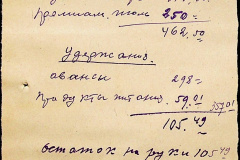 Премиал. июль 250 =
462.50
Удержания.
авансы 298 =
Продукты питания. 59.01 357.01
105.49
остаток на руки 105 49